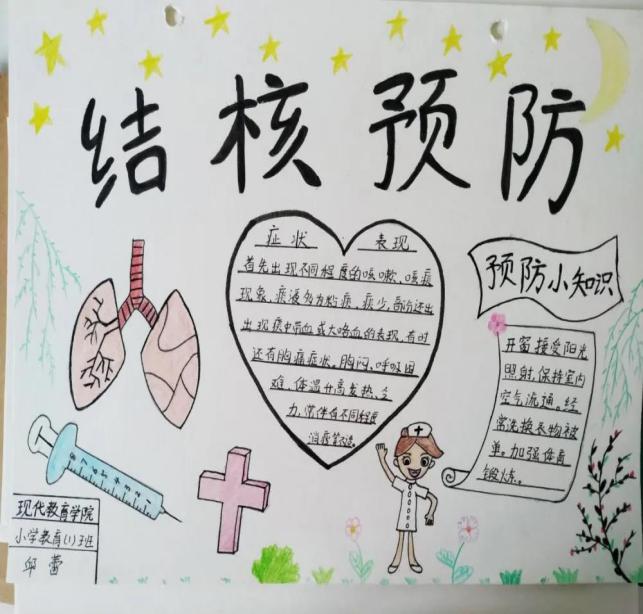 结核预防
症状 表现
首先出现不同程度的咳嗽、咳痰
现象,痰液多为粘痰,痰少,部分还出
出现痰中带血或大咯血的表现,有时
还有胸痛症状。胸闷、呼吸困
难,体温升高发热、乏
力,常伴有不同程度
消瘦
预防小知识
开窗接受阳光
照射,保持室内
空气流通。经
常洗换衣物被
单。加强体育
锻炼。
现代教育学院
小学教育(1)班
邱蕾